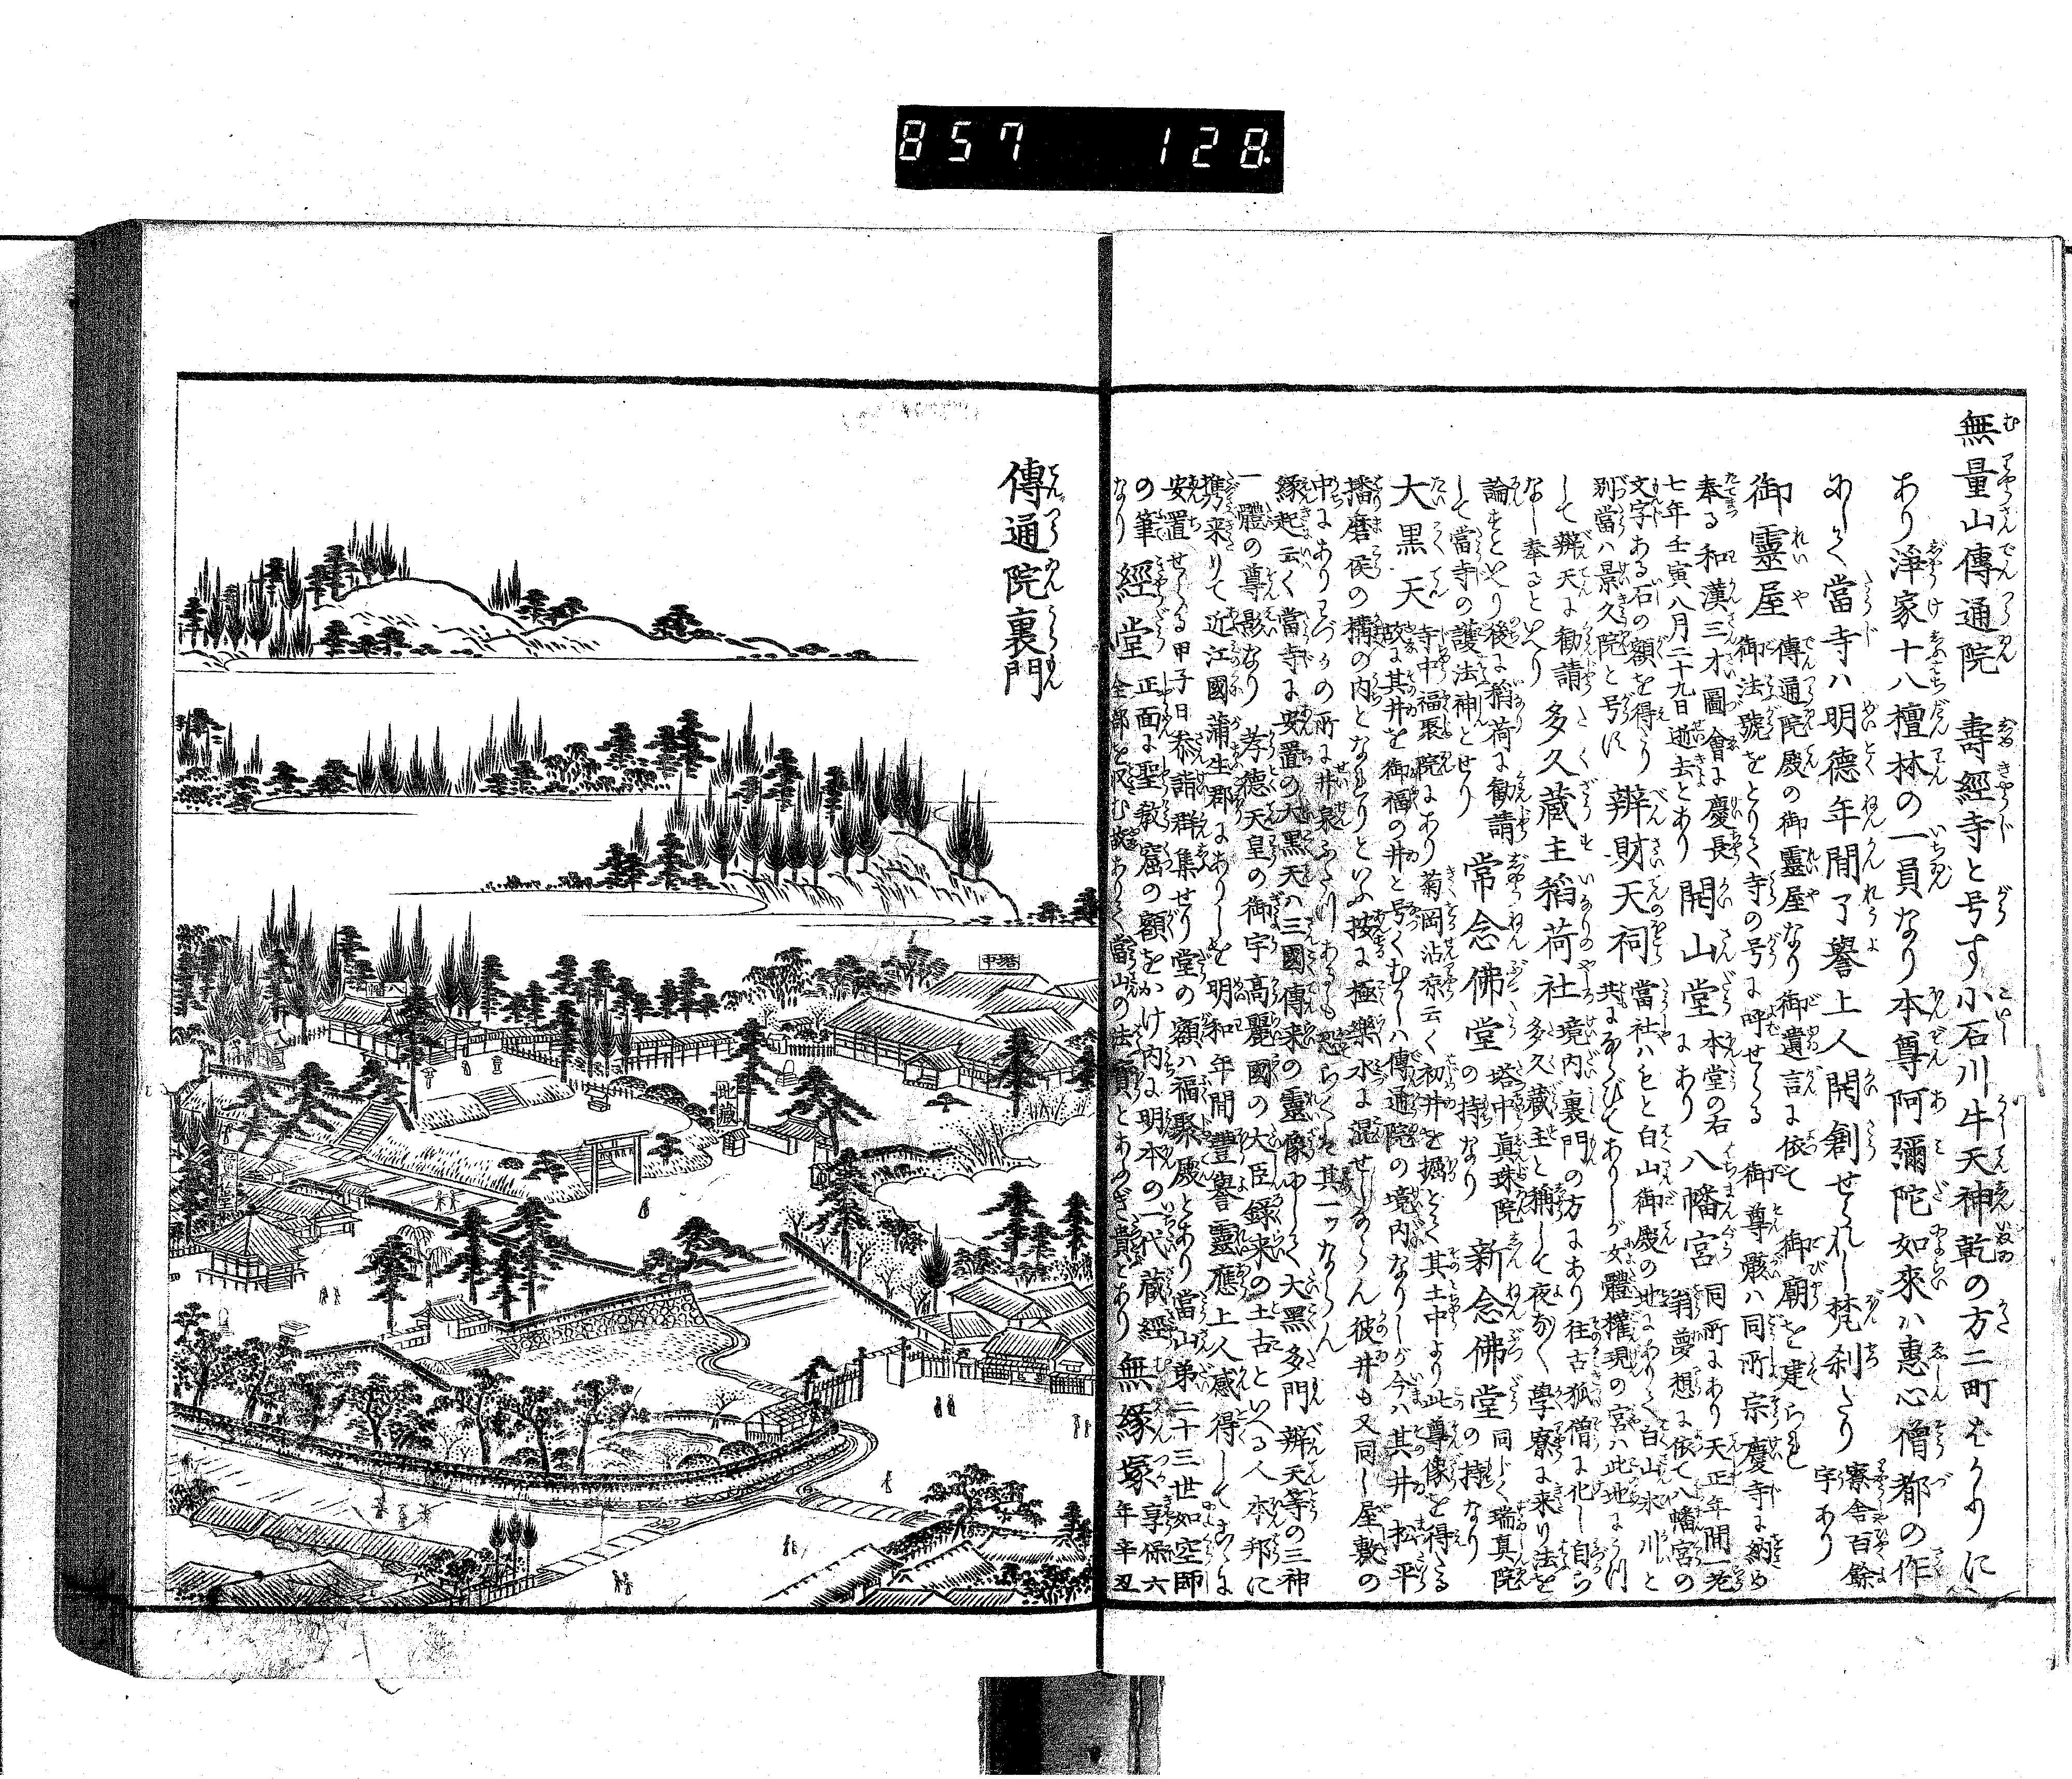 857 128
無量山傳通院 壽經寺と号す小石川牛天神乾の方二町はかりに
あり淨家十八檀林の一員なり本尊阿彌陀如來ハ惠心僧都の作
にして當寺ハ明德年間了譽上人開創せられし梵刹たり 寮舎百餘
宇あり
御靈屋 傳通院殿の御靈屋なり御遺言に依て 御廟を建らる
御法號をとりて寺の号に呼せらる 御尊骸ハ同所宗慶寺に納め
奉る和漢三才圖會に慶長 開山堂 本堂の右にあり 八幡宮 同所にあり天正年間一老
七年壬寅八月二十九日逝去とあり 翁夢想に依て八幡宮の
文字ある石の額を得たり 辨財天祠 當社ハもと白山御殿の地にありて白山氷川と
別當ハ景久院と号す 共にならびてありしが女體權現の宮ハ此地にうつ
して辨天に勧請 多久藏主稻荷社 境内裏門の方にあり往古狐僧に化し自ら
なし奉るといへり 多久藏主と稱して夜なく學寮に来り法を
論をといへり後に稻荷に勧請 常念佛堂 塔中真珠院の持なり 新念佛堂 同じく瑞真院の持なり
して當寺の護法神とせり
大黒天 寺中福聚院にあり菊岡沾凉云く初井を掘とて其土中より此尊像を得たる
故に其井を御福の井と号くむかしハ傳通院の境内なりしが今ハ其井松平
播磨侯の構の内となれりといふ按に極樂水に混せりならん彼井も又同し屋敷の
中にありてつの所に井泉ふたつあるも恐らくは其一ツならん
縁起云く當寺に安置の大黒天ハ三國傳来の靈像にして大黒多門辨天等の三神
一體の尊影なり 孝德天皇の御宇高麗國の大臣録来の土古といへる人本邦に
携来りて近江國蒲生郡にありしを明和年間豐譽靈應上人感得してこゝに
安置せらる甲子日参詣群集せり堂の額ハ福聚殿とあり當山第二十三世如空師
の筆なり 經堂 正面に聖教窟の額をかけ内に明本の一代藏經 無縁塚 享保六
年辛丑
全部を収む故ありて當山の法寶とあふぎ貴とめり
傳通院裏門
八幡
塔中
地藏